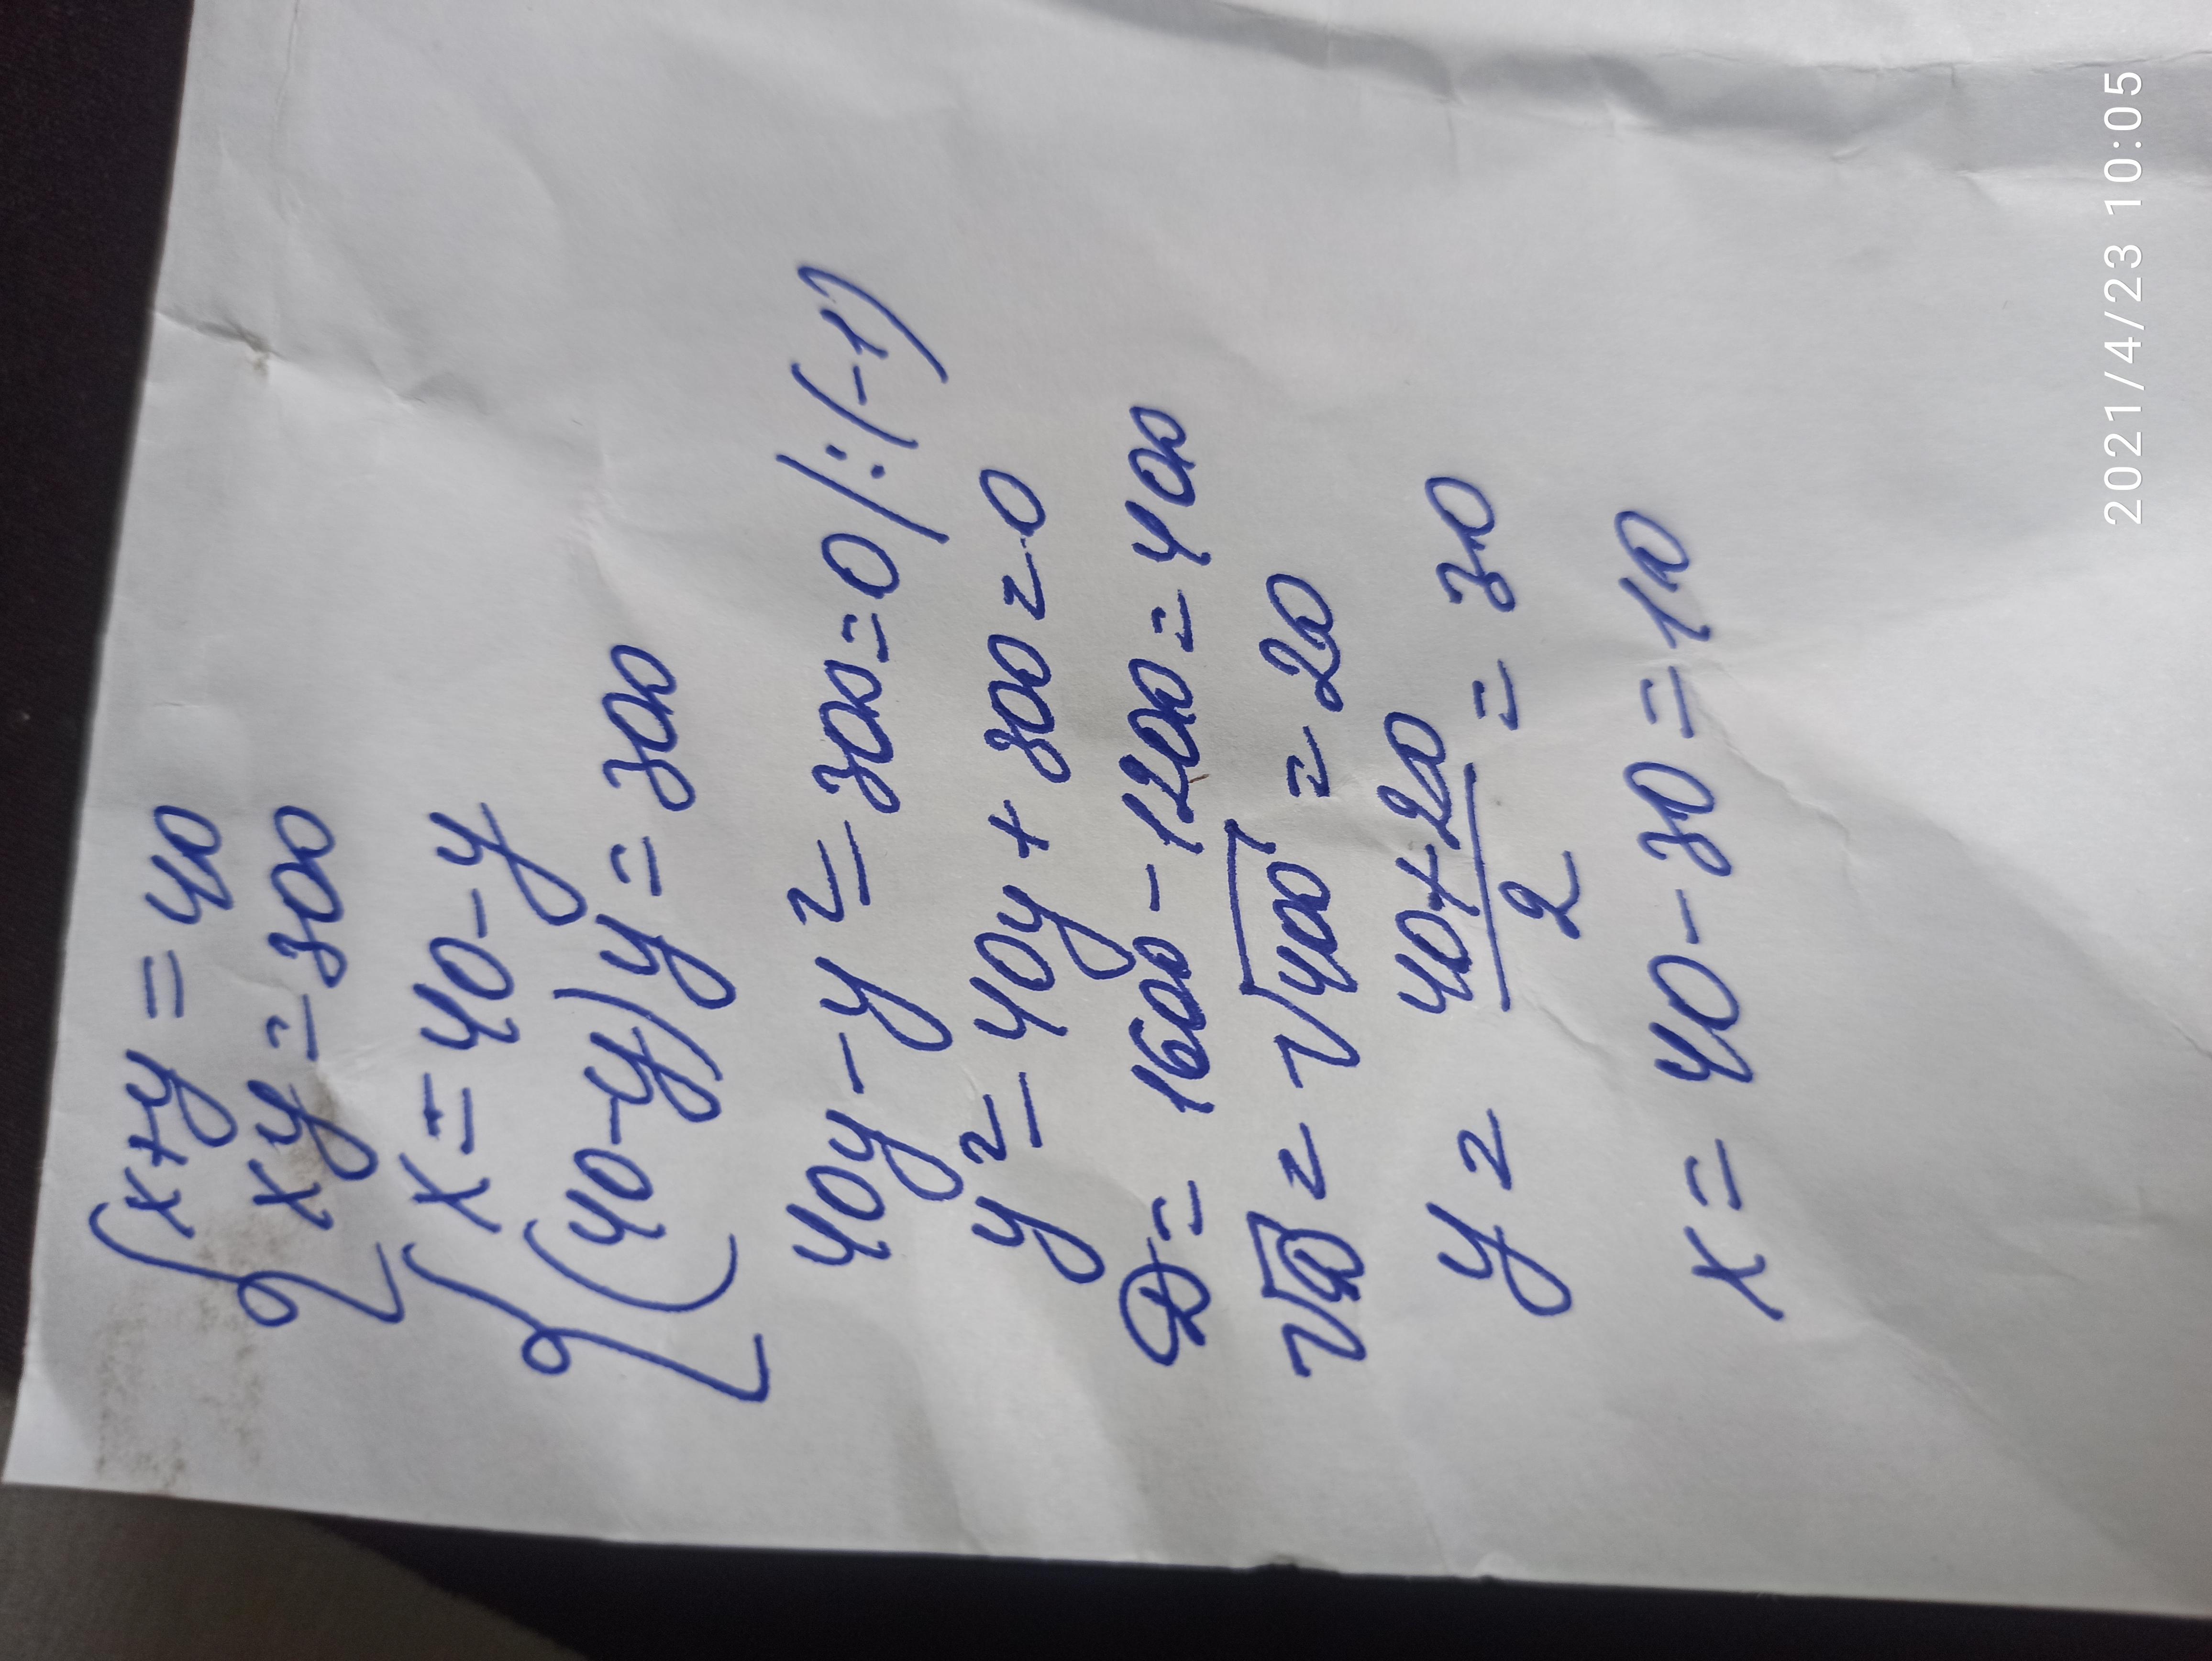 {x+y=40
xy=300
{x=40-y
(40-y)y=300
40y-y²-300=0/:(-1)
y²-40y+300=0
D=1600-1200=400
√D=√400=20
y=(40+20)/2=30
x=40-30=10
2021/4/23 10:05